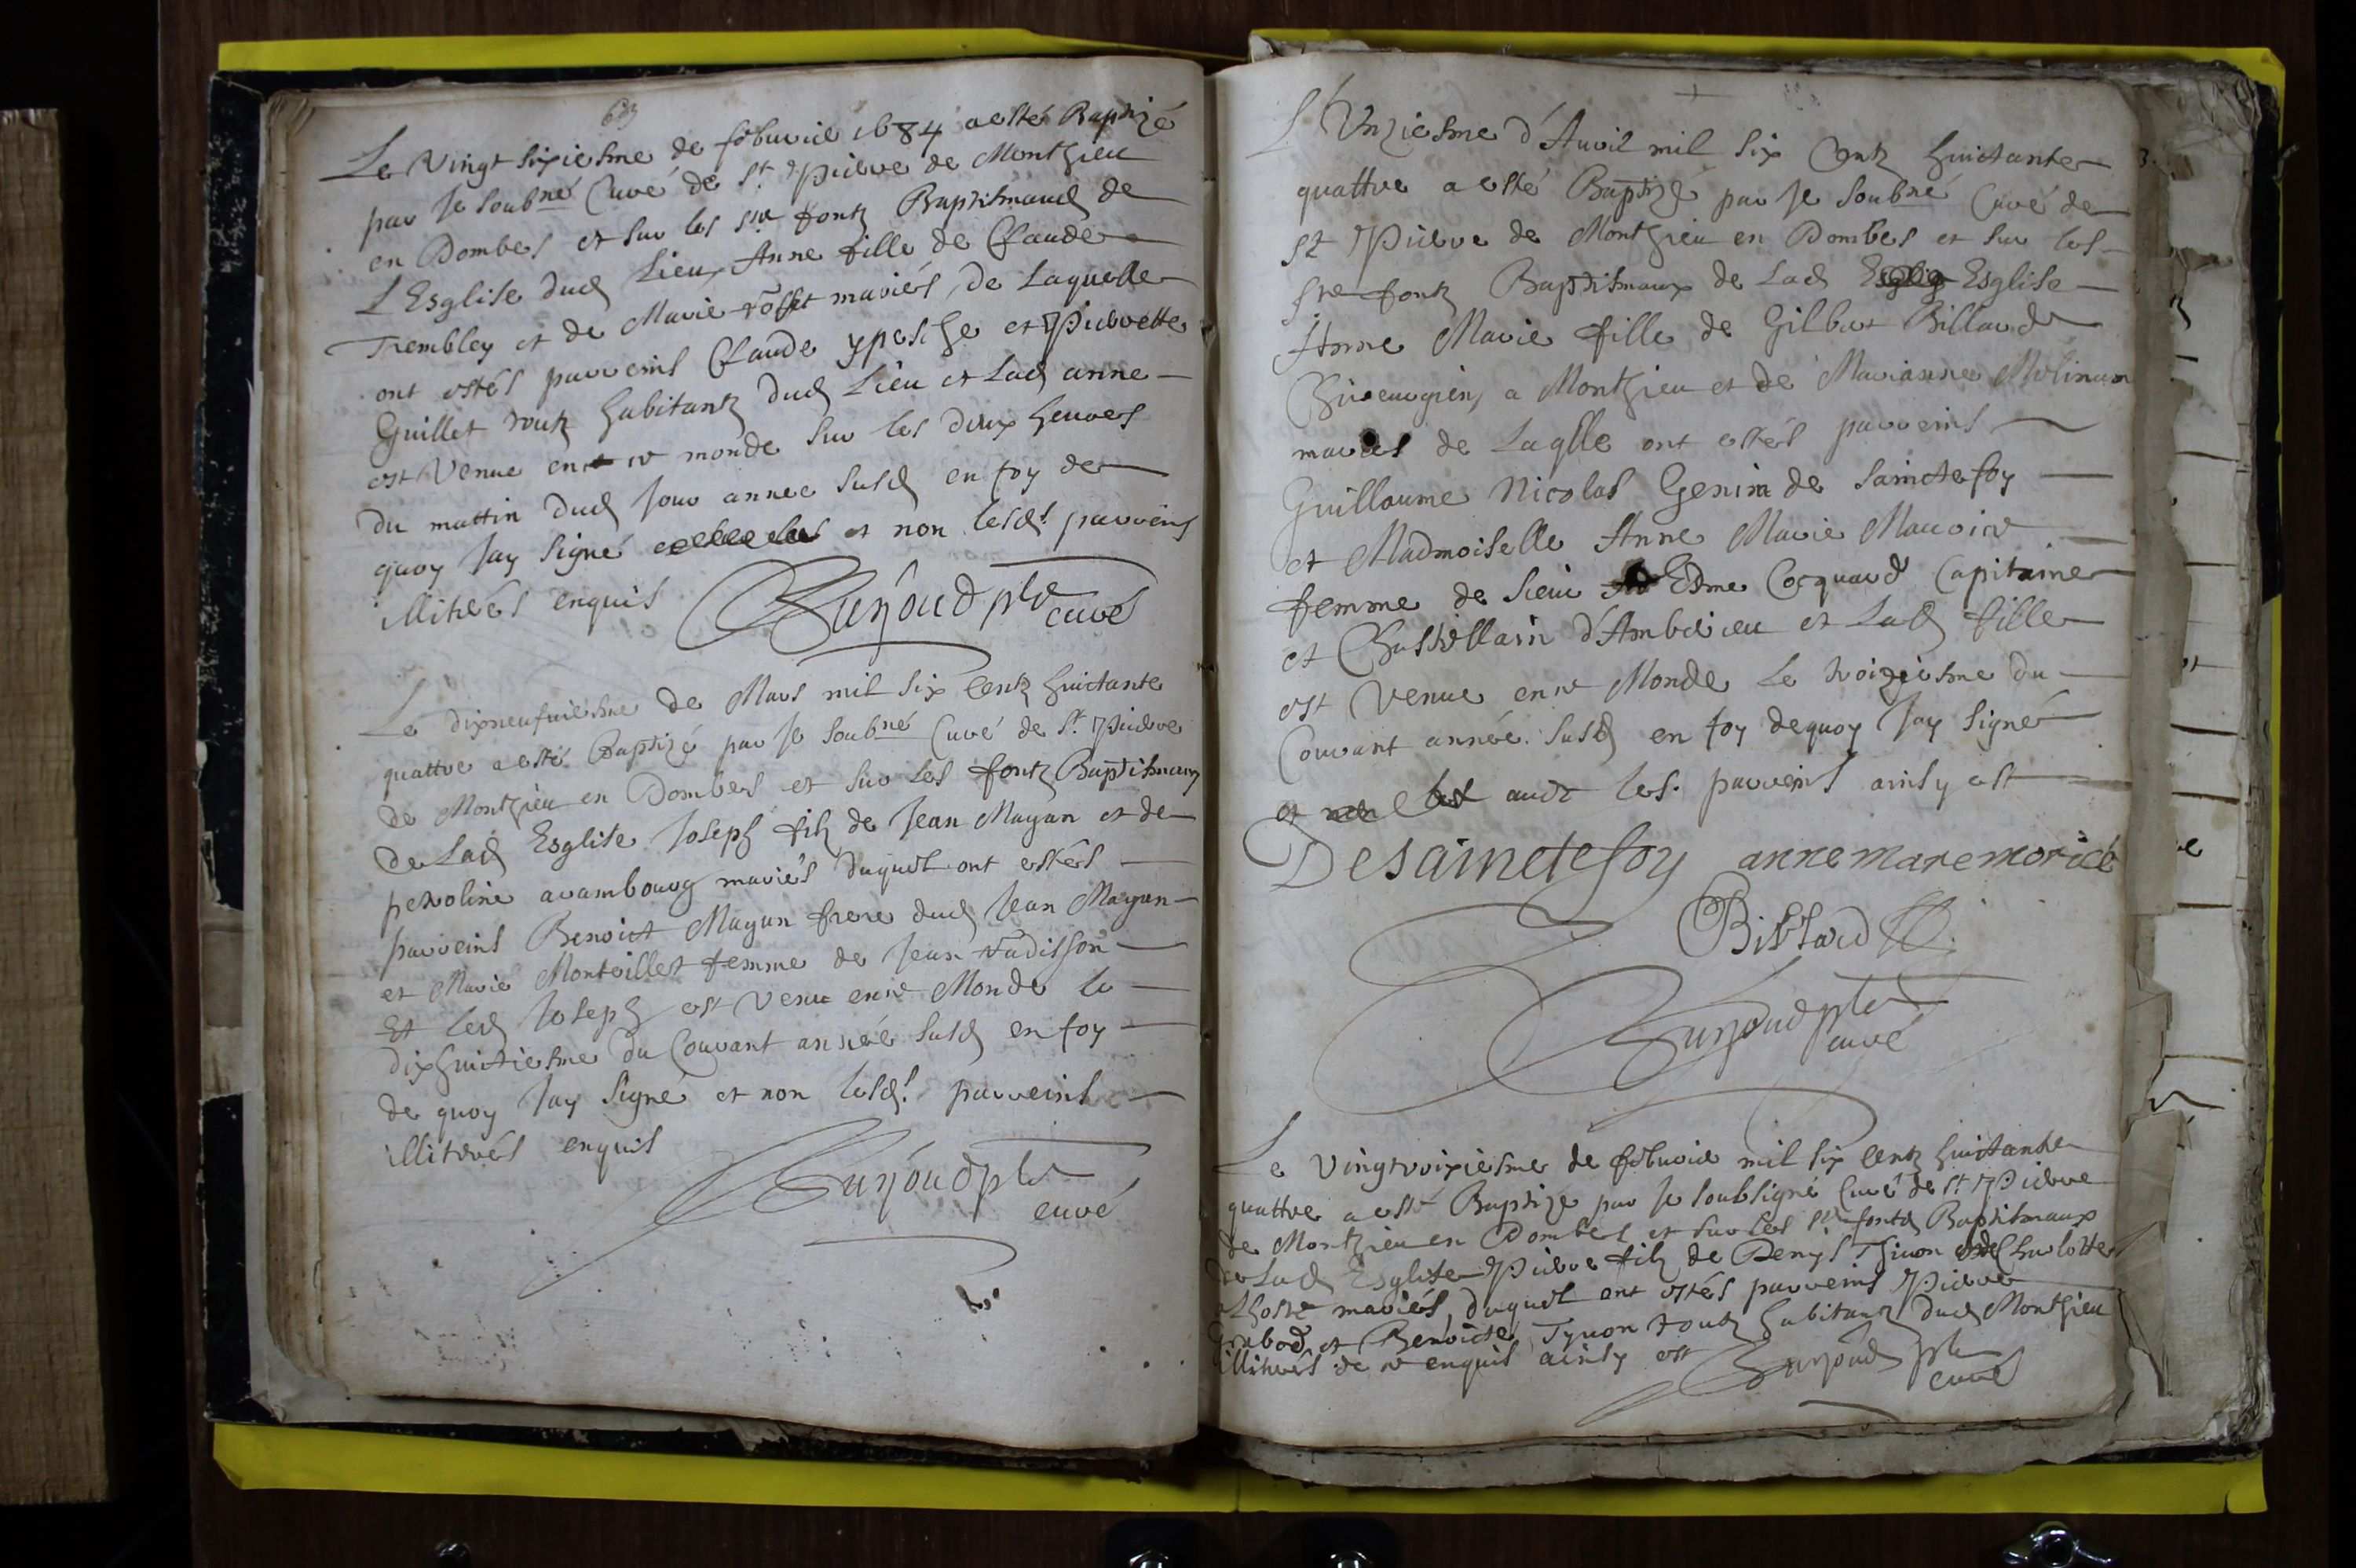 Le Vingt sixiesme de febuvrie 1684 a esté Baptizé
par Je soubné Curé de St. Pierre de Monthieu
en Dombes et sur les ste fontz Baptismaud de
L'Esglise dud Lieu Anne fille de Claude
Trembley et de Marie rosset mariés, de Laquelle
ont estés parreins Claude ypesche et Pierrette
Guillet toutz habitantz dud Lieu et Lad anne
est Venue en ce monde sur les deux heures
du mattin dud Jour annee susd en foy de
quoy Jay signé et non lesds. parreins
illitérés enquis
Burjoud ptre
curé
Le dixneufuiesme de Mars mil six centz huictante
quattre a esté Baptizé par Je soubné Curé de St. Pierre
de Monthieu en Dombes et sur les fontz Baptismaux
de Lad Esglise Joseph filz de Jean Mayan et de
peroline arambourg mariés duquel ont estés
parreins Benoict Mayan frere dud Jean Mayan
et Marie Monteillet femme de Jean radisson
Et led Joseph est Venu en ce Monde le
dixhuictiesme du Courant année susd en foy
de quoy Jay signé et non lesds. parreins
illiterés enquis
Burjoud ptre
curé
L'Unziesme d'Auril mil six Centz huictante
quattre a esté Baptizé par Je soubné Curé de
St Pierre de Monthieu en Dombes et sur les
ste fontz Baptismaux de Lad Esglise
Anne Marie fille de Gilbert Billard
Chireurgien, a Monthieu et de Marianne Molinam
mariés de Laqlle ont estés parreins
Guillaume Nicolas Genin de Sainctefoy
et Madmoiselle Anne Marie Mauoire
femme de sieur Edme Cocquard Capitaine
et Chastellain d'Amberieu et Lad fille
est Venue en ce Monde Le troiziesme du
Courant année susd en foy dequoy Jay signé
et auec les. parreins ainsy est
Desainctefoy annemaremorice
Billard
Burjoud ptre
curé
Le Vingtroixiesme de febuvrie mil six centz huictante
quattre a esté Baptizé par Je soubsigné Curé de St Pierre
de Monthieu en Dombes et sur les ste fontz Baptismaux
de Lad Esglise Pierre filz de Denys Thiuon et de Charlotte
Lhoste mariés, duquel ont estés parreins Pierre
et Benoicte Tyuon toutz habitantz dud Monthieu
illiterés de ce enquis ainsy est Burjoud ptre
curé